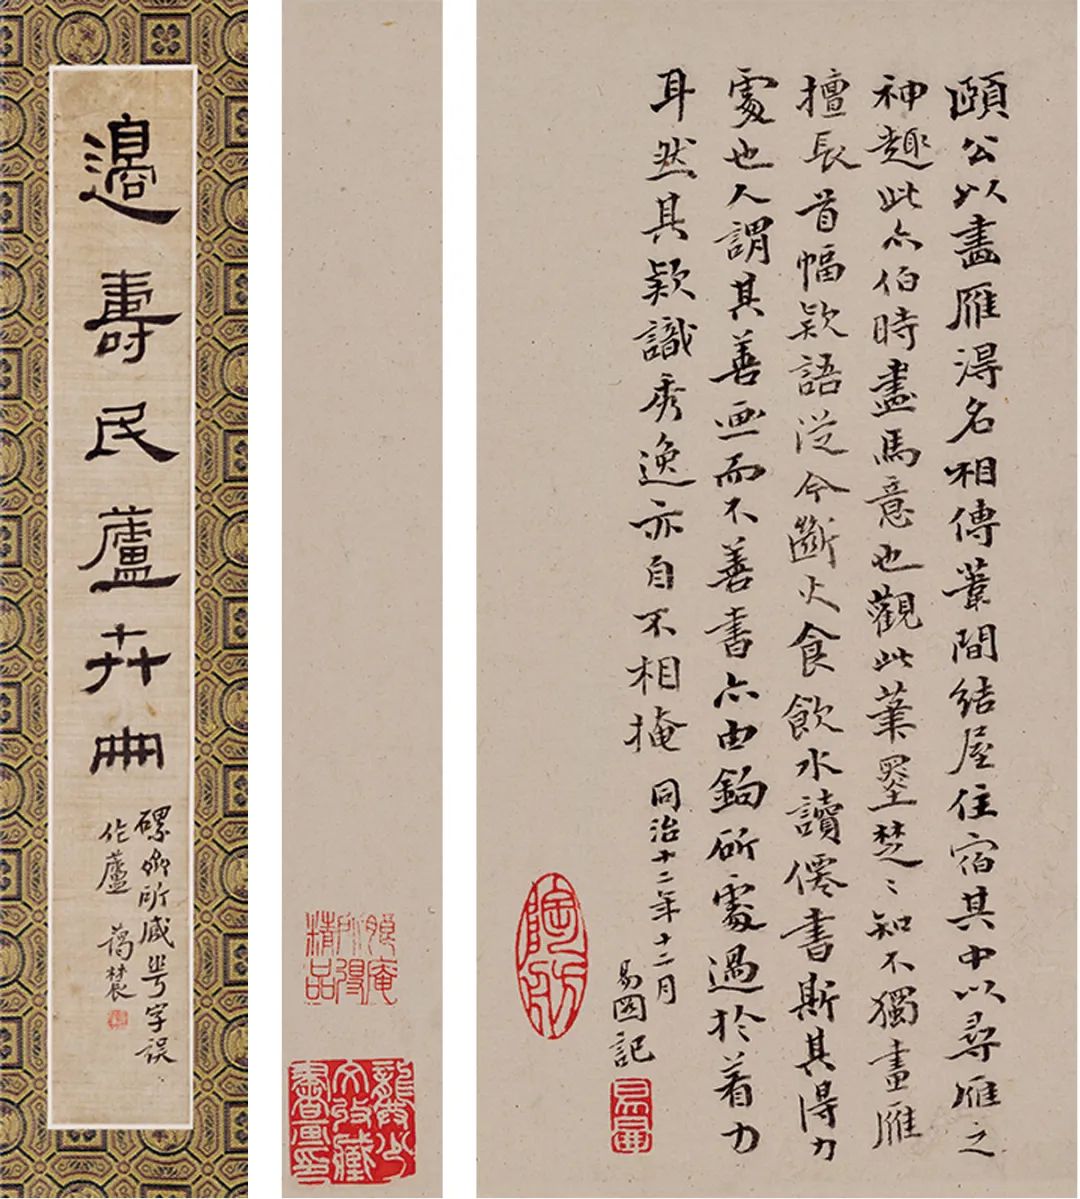 邉壽民蘆卉冊
卿所藏字誤
作蘆
頤公以畫雁得名相傳葦間結屋住宿其中以尋雁之
神趣此亦伯時畫馬意也觀此葉墨楚〻知不獨畫雁
擅長首幅款語從今斷火食飲水讀僊書斯其得力
處也人謂其善画而不善書亦由鈎斫處過於着力
耳然其款識秀逸亦自不相掩
同治十二年十二月
易園記
陶舫
所得
精品
收藏
書畫印